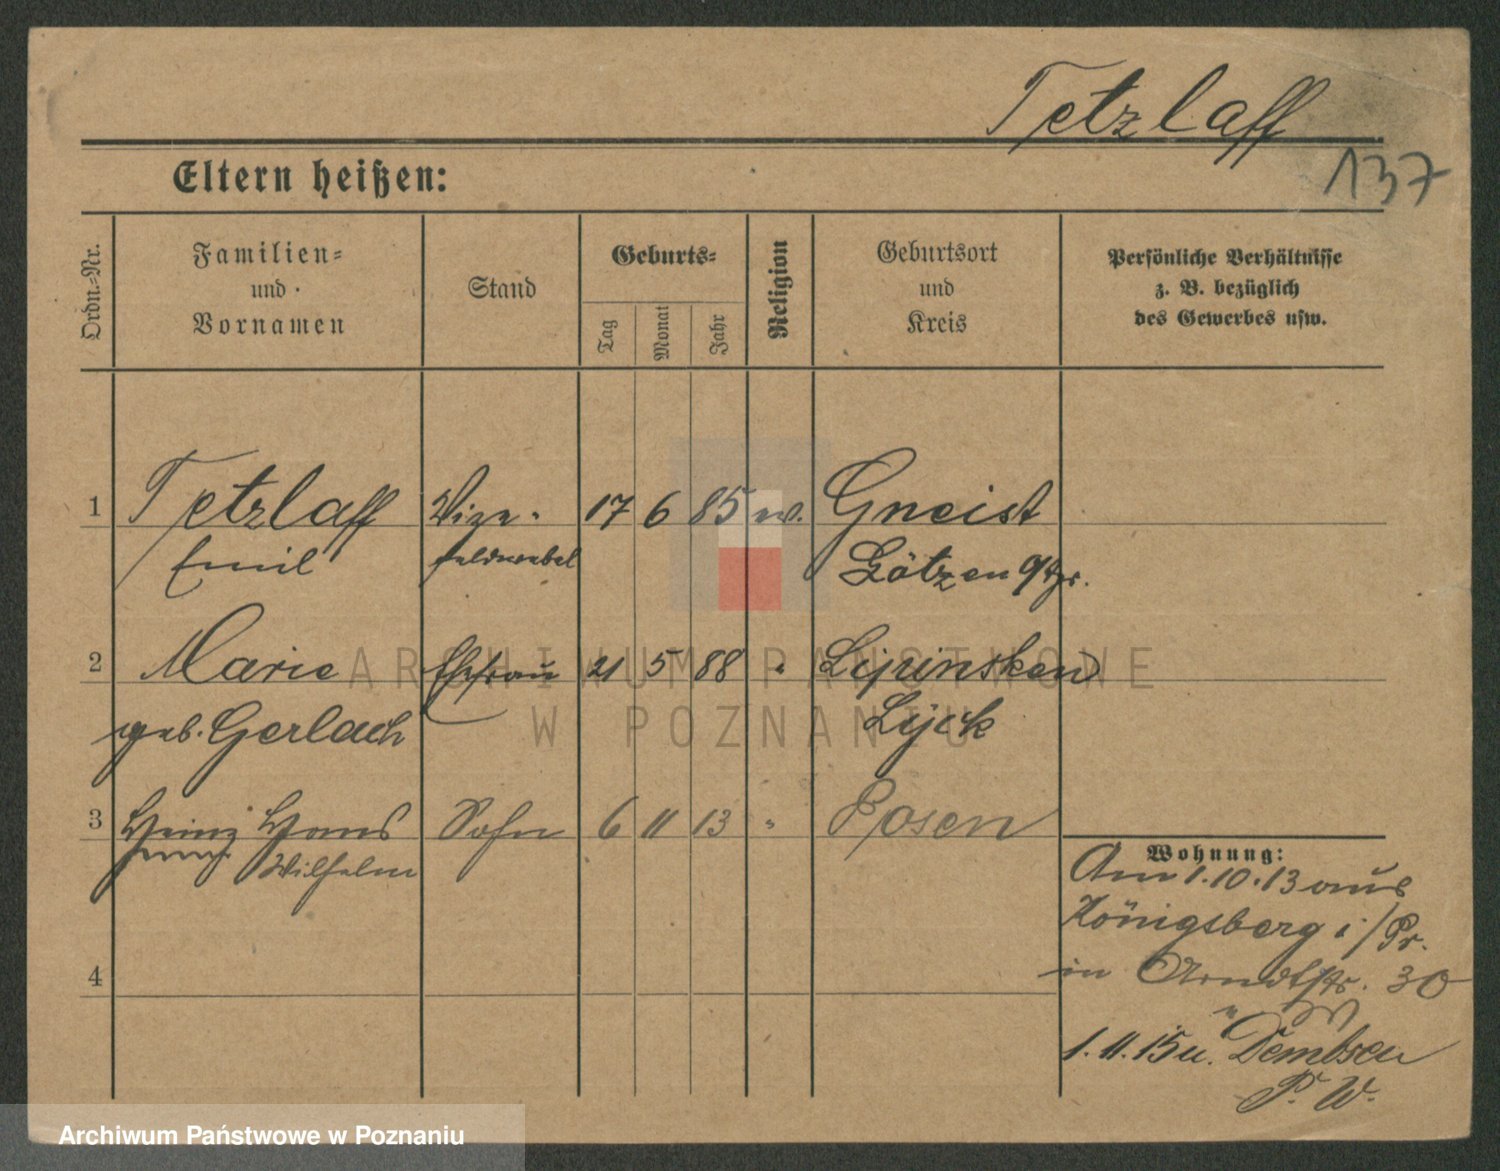 Tetzlaff
137
Eltern heißen:
Ordn.-Nr.
Familien-
und
Vornamen
Stand
Geburts-
Tag
Monat
Jahr
Religion
Geburtsort
und
Kreis
Persönliche Verhältnisse
z. B. bezüglich
des Gewerbes usw.
1 Tetzlaff Vize- 17 6 85 ev. Gneist
Emil feldwebel Lötzen O/Pr.
2 Marie Ehefrau 21 5 88 " Lipinsken
geb. Gerlach Lyck
3 Heinz Hans Sohn 6 11 13 " Posen
Wilhelm
4
Wohnung:
Am 1.10.13 aus
Königsberg i/Pr.
in Arndtstr. 30
1.11.15 n. Dembsen
P. W.
ARCHIWUM PAŃSTWOWE
W POZNANIU
Archiwum Państwowe w Poznaniu